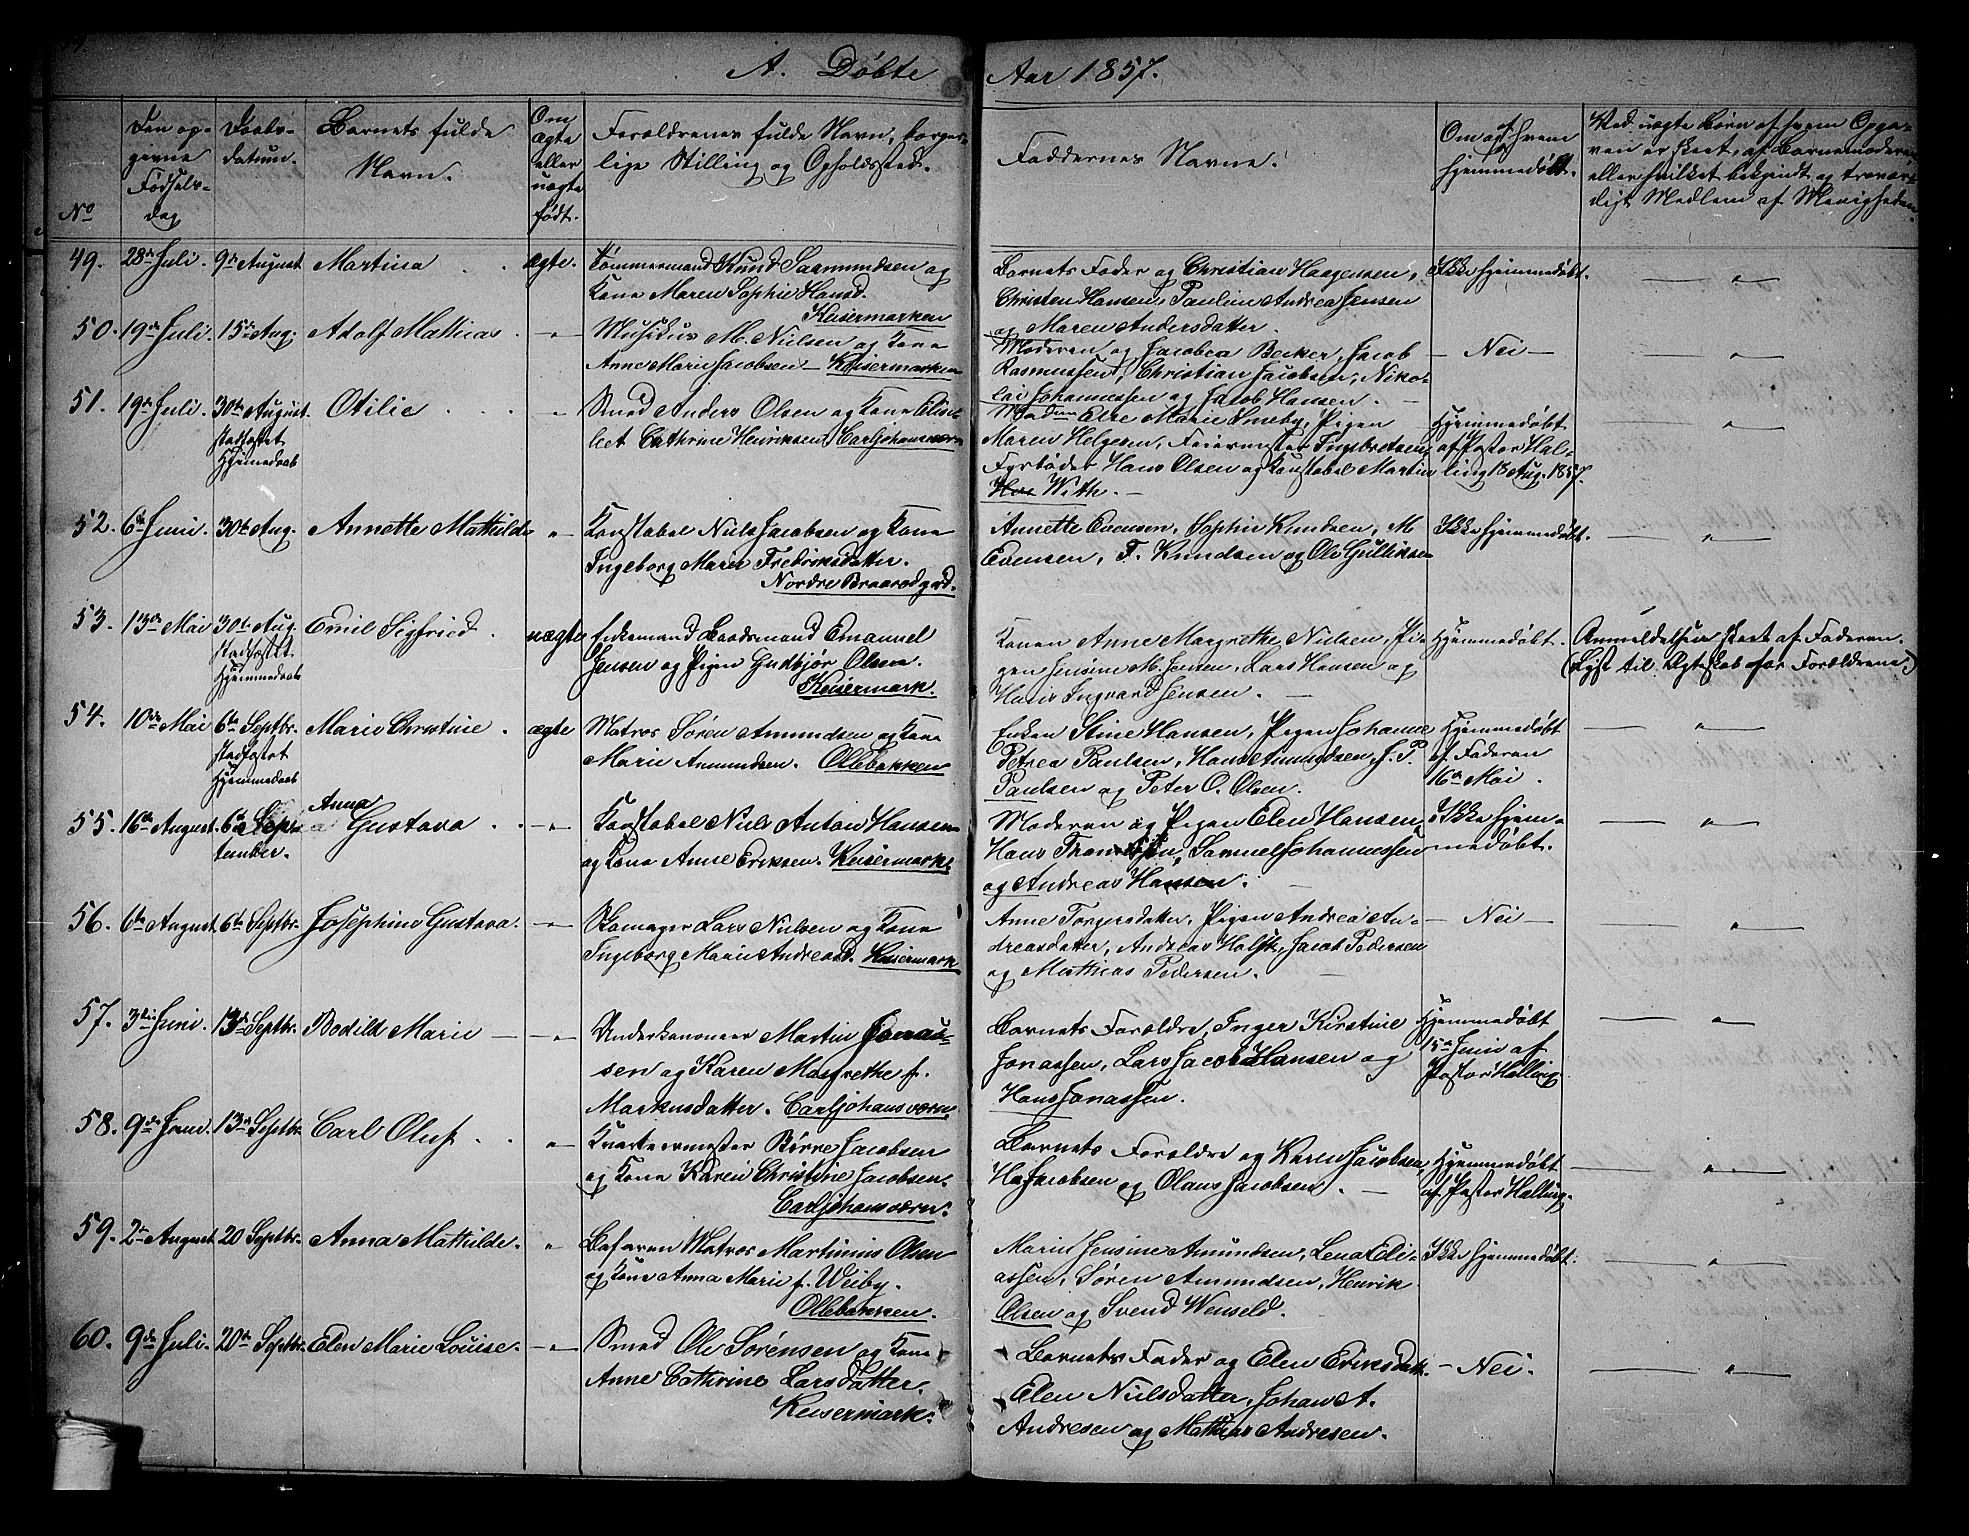 A. Døbte
Aar 1857.
No
Den op-
givne
Fødsels-
dag
Daabs-
datum.
Barnets fulde
Navn.
Om
ægte
eller
uægte
født.
Forældrenes fulde Navn, borger-
lige Stilling og Opholdssted.
Faddernes Navne.
Om og af hvem
hjemmedøbt.
Ved uægte Børn af hvem Opga-
ven er skeet, af Barnemoderen
eller hvilket bekjendt og trovær-
digt Medlem af Menigheden.
49. 28de Juli. 9de August Martina . . ægte.
Tømmermand Knud Saamundsen og
Kone Maren Sophie Hansd.
Keisermarken
Barnets Fader og Christian Haagensen,
Christen Hansen, Pauline Andrea Jensen
og Maren Andersdatter.
Ikke hjemmedøbt.
— " —
50. 19de Juli 15de Aug. Adolf Mathias . — " —
Musikus M. Nielsen og Kone
Anne Marie Jacobsen — Keisermarken
Moderen og Jacobea Becker, Jacob
Rasmussen, Christian Jacobsen, Niko-
lai Johannessen og Jacob Hansen. —
— Nei —
— " —
51. 19de Juli. 30te August. Otilie . . . "
stadfæstet
Hjemmedaab
Smed Anders Olsen og Kone Elisa-
bet Cathrine Henriksen, Carljohansværn
Madam Else Marie Omeby, Pigen
Maren Helgesen, Feiermester Ingebretsen,
Fyrbøder Hans Olsen og Konstabel Martin
Hve With. —
Hjemmedøbt
af Pastor Hal-
ling 13 Aug. 1857.
— " —
52. 6te Juni. 30te Aug. Annette Mathilde "
Konstabel Niels Jacobsen og Kone
Ingeborg Maren Fredriksdatter.
Nordre Braarødgrd.
Annette Evensen, Sophie Knudsen, M
Evensen, F. Knudsen og Ole Gulliksen
Ikke hjemmedøbt.
— " —
53. 13de Mai 30te Aug. Emil Sigfried. uægte
stadfæstet
Hjemmedaab
Enkemand Baadsmand Emanuel
Jensen og Pigen Gudbjør Olsen.
Keisermark.
Konen Anne Margrethe Nielsen, Pi-
gen Jensine M. Jensen, Lars Hansen og
Hans Ingvard Jensen. —
Hjemmedøbt.
Anmeldelsen skeet af Faderen.
(Lyst til Ægteskab for Forældrene.)
54. 10de Mai 6te Septbr. Marie Christine. ægte
stadfæstet
Hjemmedaab
Matros Søren Amundsen og Kone
Marie Amundsen. Ollebakken
Enken Stine Hansen, Pigen Johanne
Petrea Paulsen, Hans Amundsen, J. P.
Paulsen og Peter O. Olsen.
Hjemmedøbt
af Faderen
16de Mai.
— " —
Anna
55. 16de August. 6te Sep- Gustava . . — " —
tember.
Konstabel Niels Anton Hansen
og Kone Anne Eriksen. Keisermark.
Moderen og Pigen Elen Hansen,
Hans , Samuel Johannessen
og Andreas Hansen. —
Ikke hjem-
medøbt.
— " —
56. 6te August 6te Septbr. Josephine Gustava. — " —
Skomager Lars Nielsen og Kone
Ingeborg Marie Andreasd. Keisermark
Anne Torgersdatter, Pigen Andrea An-
dreasdatter, Andreas Holst, Jacob Pedersen
og Mathias Pedersen. —
— Nei —
— " —
57. 3die Juni. 13de Septbr. Bodild Marie — — " —
Underkanoneer Martin Jonas-
sen og Karen Margrethe f.
Markusdatter. Carljohansværn.
Barnets Forældre, Inger Kirstine
Jonassen, Lars Jacob Hansen og
Hans Jonassen.
Hjemmedøbt
15de Juni af
Pastor Halling
— " —
58. 9de Juni. 13de Septbr. Carl Oluf. . . " —
Kvarteermester Børre Jacobsen
og Kone Karen Christine Jacobsen.
Carljohansværn.
Barnets Forældre og Karen Jacobsen,
H Jacobsen og Olaus Jacobsen. —
Hjemmedøbt
af Pastor Halling.
— " —
59. 2den August 20 Septbr. Anna Mathilde. "
Befaren Matros Martinius Olsen
og Kone Anna Marie f. Weiby.
Ollebakken.
Marie Jensine Amundsen, Lena Eli-
assen, Søren Amundsen, Henrik
Olsen og Svend Wenseld.
Ikke hjemmedøbt.
— " —
60. 9de Juli. 20de Septbr. Elen Marie Louise. — " —
Smed Ole Sørensen og Kone
Anne Cathrine Larsdatter.
Keisermark.
Barnets Fader og Elen Eriksdatt.
Elen Nielsdatter, Johan A.
Andresen og Mathias Andresen.
— Nei.
— " —